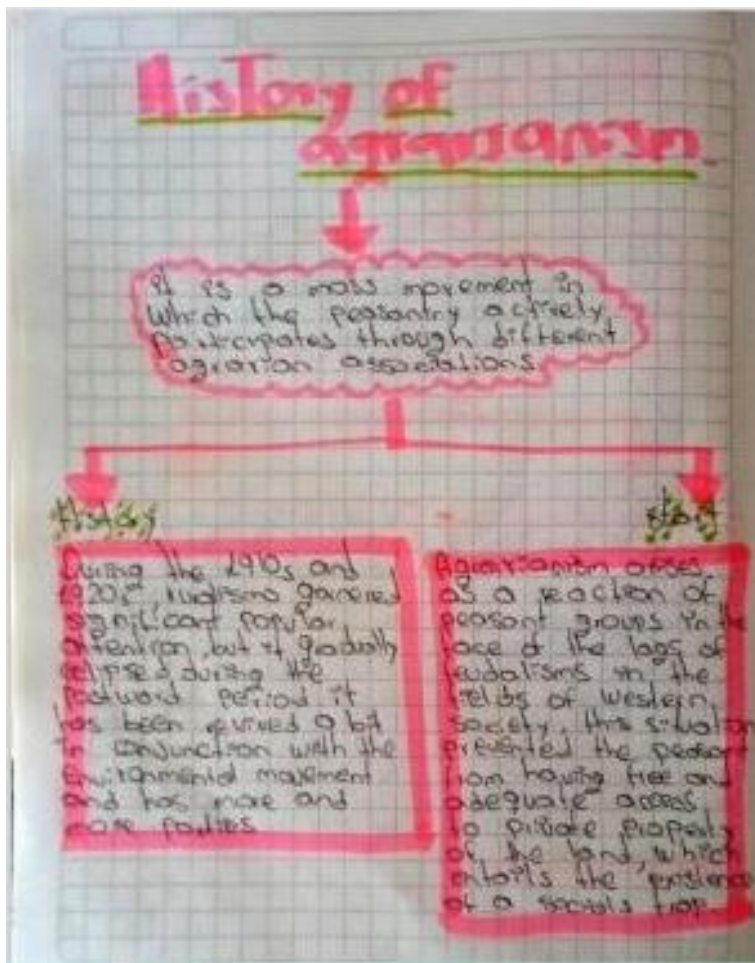 History of
agrarianism.
it is a mass movement in
which the peasantry actively
participates through different
agrarian associations
History
During the 1910s and
1920s, ruralisms garnered
significant popular
attention, but it gradually
eclipsed during the
Postword period it
has been revived a bit
in conjunction with the
environmental movement
and has more and
more parties
start
Agrarianism arises
as a reaction of
peasant groups in the
face of the lags of
feudalisms in the
fields of western
society, this situation
prevented the peasant
from having free and
adequate access
to private property
of the land, which
entails the existence
of a